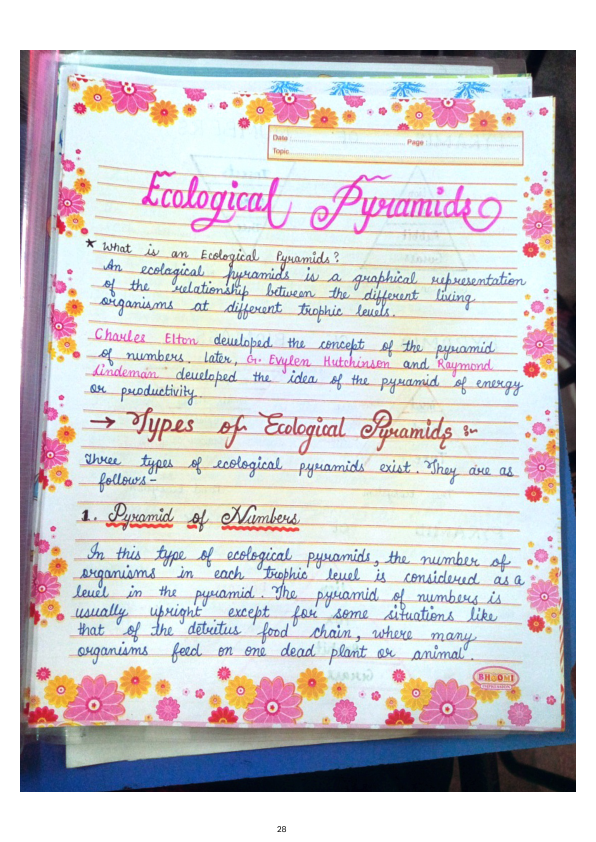 Date
Page
Topic
Ecological Pyramids
* What is an Ecological Pyramids?
An ecological pyramids is a graphical representation
of the relationship between the different living
organisms at different trophic levels.
Charles Elton developed the concept of the pyramid
of numbers. later, G. Evylen Hutchinson and Raymond
Lindeman developed the idea of the pyramid of energy
or productivity.
→ Types of Ecological Pyramids :-
Three types of ecological pyramids exist. They are as
follows-
1. Pyramid of Numbers
In this type of ecological pyramids, the number of
organisms in each trophic level is considered as a
level in the pyramid. The pyramid of numbers is
usually upright except for some situations like
that of the detritus food chain, where many
organisms feed on one dead plant or animal.
BHOOMI
28